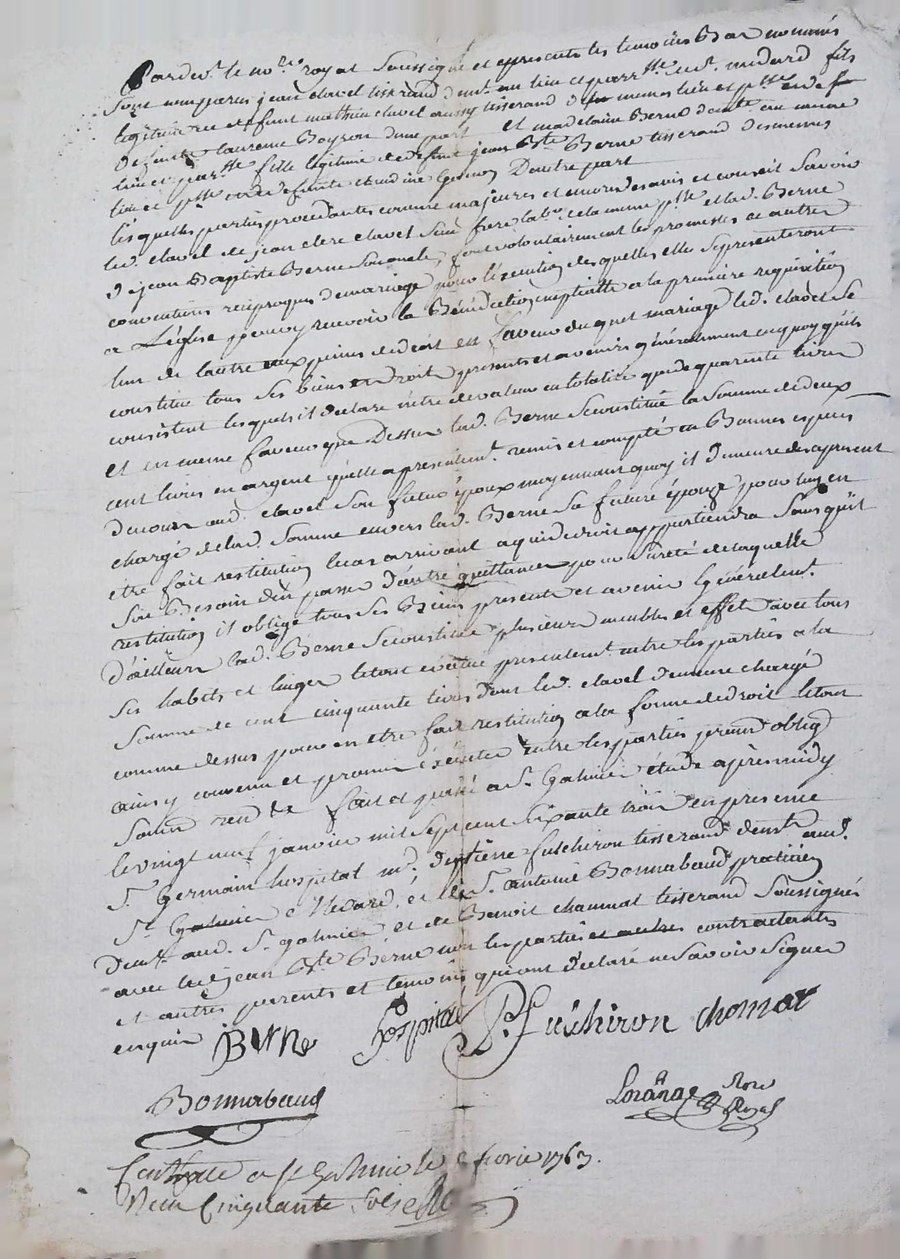 Pardev.t le no.re royal Soussigné et epresents les temoins Bas nommés
Sont comparus jean clavel tisserand dem.t au lieu et parr.sse de S.t medard fils
legitime de deffunt mathieu clavel aussy tisserand dud. meme lieu et p.sse et de
deffunte laurence Boyron dune part et madelaine Berne demte au meme
lieu et parr.sse fille legitime de deffunt jean B.te Berne tisserand desmemes
lieu et p.sse et de deffunte Dautre part
lesquelles parties procedantes comme majeures et encore desavis et conseil Savoir
led. clavel de jean clavel Son frere lab.r de la meme p.sse et lad. Berne
de jean Baptiste Berne Son oncle, font volontairement les promesses et autres
conventions reciproques de mariage pour l'execution desquelles elles Sepresenteront
a L'eglise pour y recevoir la Bénédiction nuptialle a la premiere requisition
lun de lautre aux peines de droit En faveur duquel mariage led. clavel se
constitue tous Ses biens et Droits présents et avenirs généralement en quoy qu'ils
consistent lesquels il declare n'etre de valeur en totalité que de quarente livres
et en meme faveur que Dessus lad. Berne Seconstitue la Somme de deux
cent livres en argent qu'elle a presentem.t remis et compté en Bonnes especes
de cours aud. clavel Son futur époux moyennant quoy il demeure des apresent
chargé de lad. Somme envers lad. Berne Sa future épouse pour luy en
être fait restitution le cas arrivant a qui de droit appartiendra Sans qu'il
Soit Besoin d'en passer d'autre quittance pour Sureté de laquelle
restitution il oblige tous Ses Biens presents et avenir Généralem.t
D'ailleurs lad. Berne Seconstitue plusieurs meubles et effets avec tous
Ses habits et linges le tout évalué presentem.t entre les parties a la
Somme de cent cinquante livres dont led. clavel demeure chargé
comme dessus pour en etre fait restitution a la forme de droit le tout
ainsy convenu et promis executer entre les parties prenan oblig.
Soum renon.t fait et passé a S.t Galmier étude après midy
le vingt neuf janvier mil Sept cent Soixante trois en presence
S.r Germain hospital m.d, d'Etiene fuschiron tisserand dem.t aud.
S.t et le S.r antoine Bonnabaud praticien
Dem.t aud. S.t galmier et de Benoit chaumat tisserand Soussignés
avec led. jean B.te Berne non les parties et autres contractants
et autres parents et temoins qui ont declaré ne Savoir Signer
enquis BERNe hospital P.r fuschiron chomat
Bonnabaud
Lorange No.re Royal
Controlle a S.t Galmier le fevrie 1763.
Recu Cinquante Sols